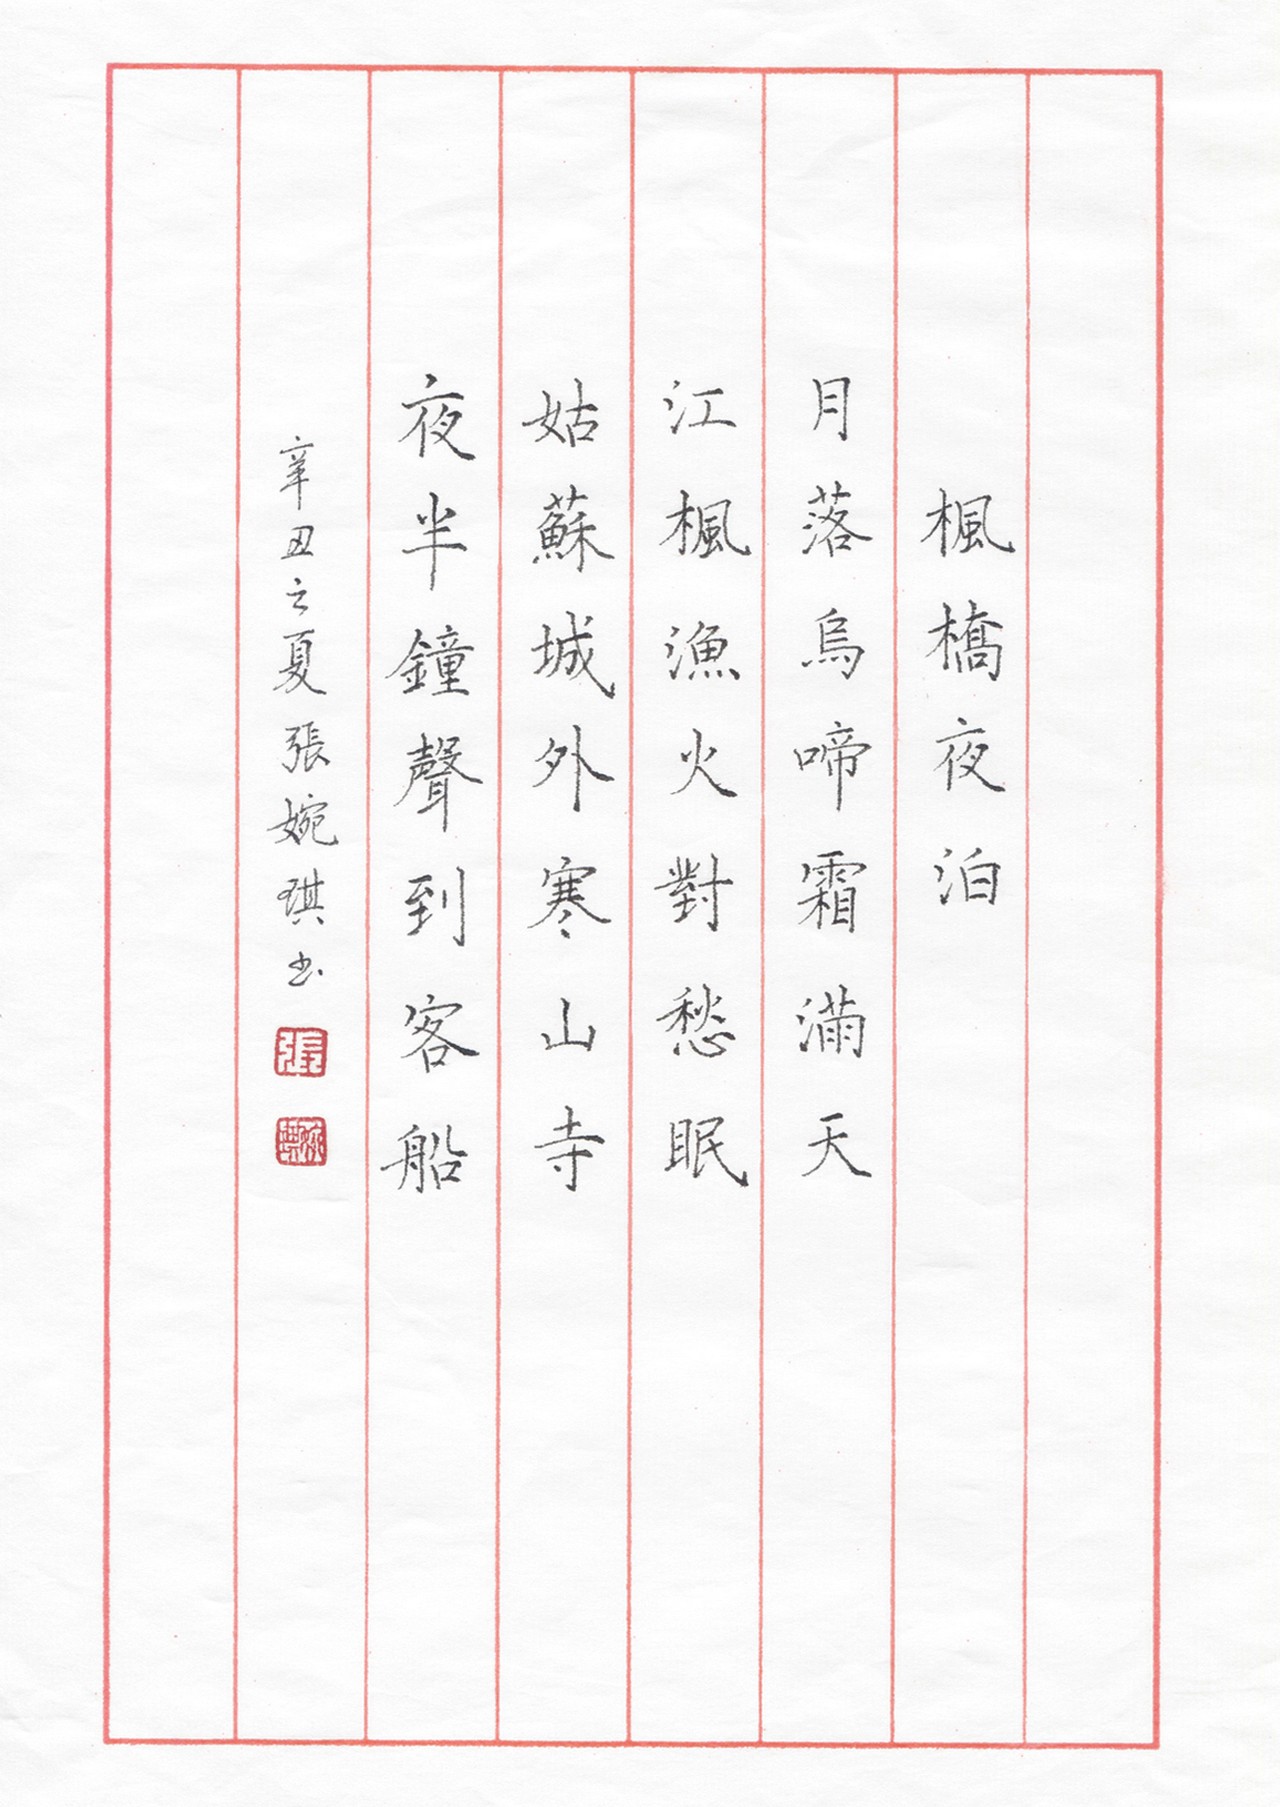 楓橋夜泊
月落烏啼霜滿天
江楓漁火對愁眠
姑蘇城外寒山寺
夜半鐘聲到客船
辛丑之夏張婉琪书
張